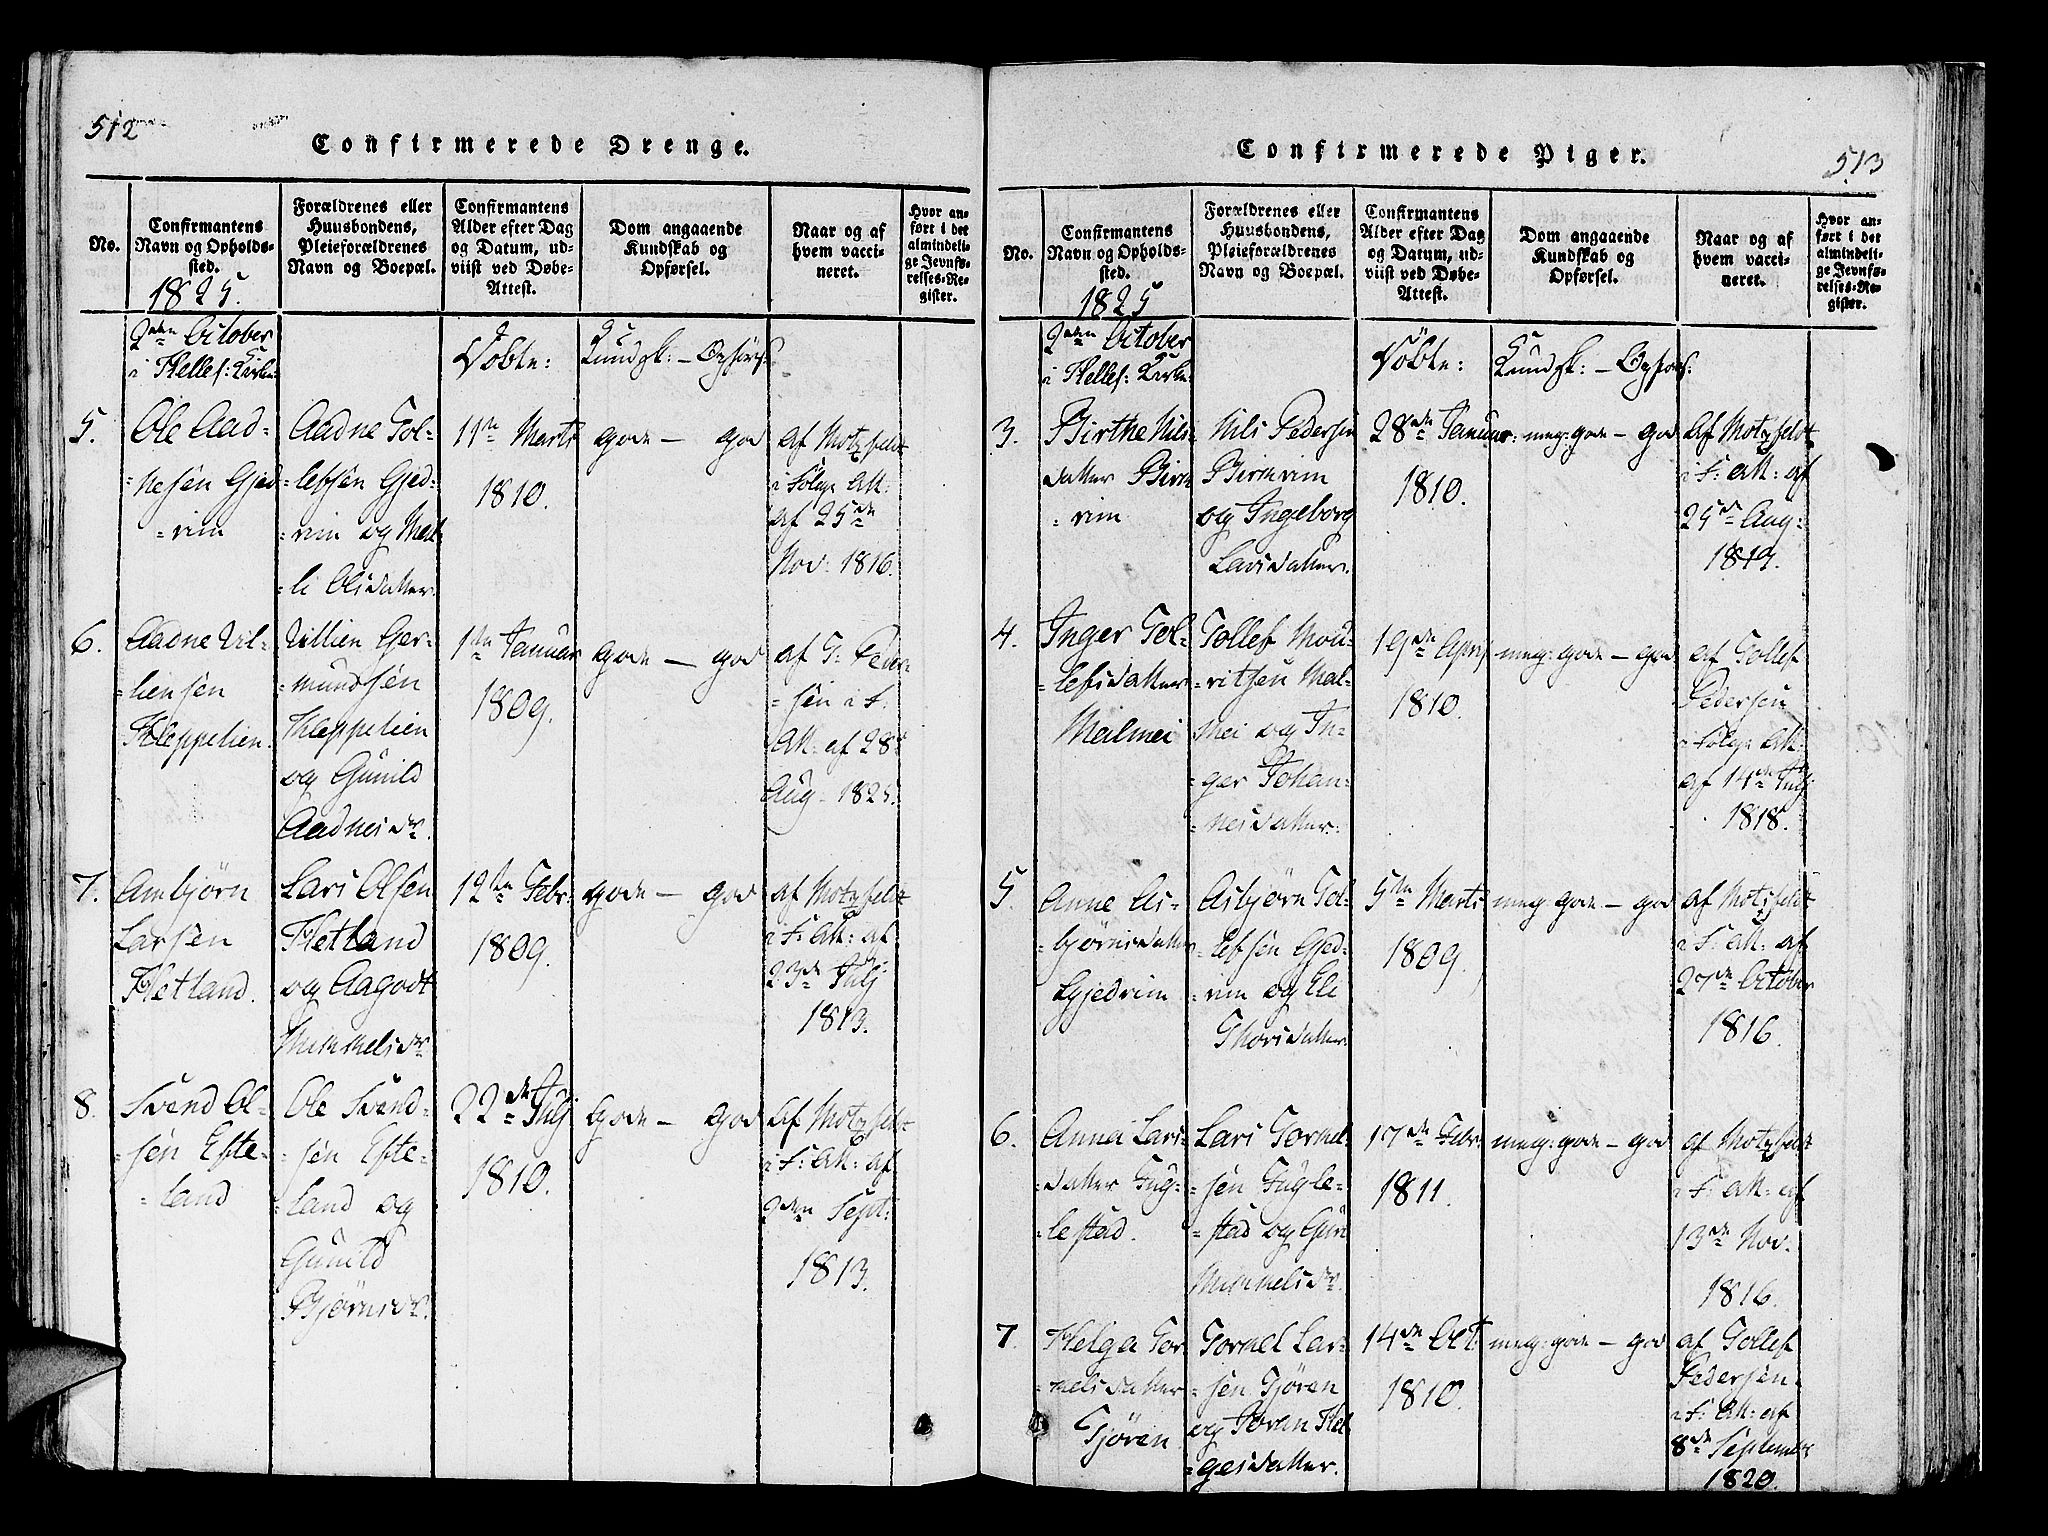 512
Confirmerede Drenge.
No.
Confirmantens
Navn og Opholds-
sted.
1825.
Forældrenes eller
Huusbondens,
Pleieforældrenes
Navn og Boepæl.
Confirmantens
Alder efter Dag
og Datum, ud-
viist ved Døbe-
Attest.
Dom angaaende
Kundskab og
Opførsel.
Naar og af
hvem vacci-
neret.
Hvor an-
ført i det
almindeli-
ge Jevnfø-
relses-Re-
gister.
2den October
i Hellel: Kirke
Döbte:
Kundsk: - Opförs:
5.
Ole Aad-
-nesen Gjed
-rim
Aadne Tol-
-lefsen Gjed-
-rim og Mal-
-li Olsdatter.
11te Marts
1810.
gode - god
af Motzfeldt
i Fölge Att:
af 25de
Nov: 1816.
6.
Aadne Vil-
-liensen
Kleppelien.
Villien Ger-
-mundsen
Kleppelien
og Gunild
Aadnesdr.
1te Januar
1809.
gode - god
af T: Peder-
-sen i F.
Att: af 28
Aug - 1825.
7.
Ambjörn
Larsen
Hetland.
Lars Olsen
Hetland
og Aagodt
Mimmelsdr
12te Febr:
1809.
gode - god
af Motzfeldt
i F: Att: af
23de Julj
1813.
8.
Svend Ol-
-sen Efte-
-land
Ole Svend-
-sen Efte-
-land og
Gunild
Bjørnsdr.
22de Julj
1810.
gode - god
af Motzfeldt
i F: Att: af
2den Sept:
1813.
Confirmerede Piger.
513
No.
Confirmantens
Navn og Opholds-
sted.
1825
Forældrenes eller
Huusbondens,
Pleieforældrenes
Navn og Boepæl.
Confirmantens
Alder efter Dag
og Datum, ud-
viist ved Døbe-
Attest.
Dom angaaende
Kundskab og
Opførsel.
Naar og af
hvem vacci-
neret.
Hvor an-
ført i det
almindeli-
ge Jevnfø-
relses-Re-
gister.
2den October
i Hellel: Kirke
Döbte:
Kundsk: - Opförs:
3.
Birthe Nils-
datter Birk
-rim
Nils Pedersen
Birkrim
og Ingeborg
Larsdatter.
28de Januar:
1810.
meg: gode - god
af Motzfeldt
i F: Att: af
25de Aug:
1819.
4.
Inger Tol-
-lefsdatter
Malmei
Tollef Mou-
-ritsen Mal-
mei og In-
-ger Johan-
-nesdatter.
19de April
1810.
meg: gode - god
af Tollef
Pedersen
i Fölge Att:
af 14de Julj
1818.
5.
Anne As-
-bjørnsdatter
Gjedrim
Asbjørn Tol-
-lefsen Gjed-
-rim og Eli
Thorsdatter
5te Marts
1809.
meg: gode - god
af Motzfeldt
i F: Att: af
27de October
1816.
6.
Anna Lars-
-datter Fug-
-lestad.
Lars Tormel-
-sen Fugle-
-stad og Guri
Mimmelsdr.
17de Febr:
1811.
meg: gode - god
af Motzfeldt
i F: Att: af
13de Nov.
1816.
7.
Helga Tor-
-melsdatter
Tjören
Tormel Lar-
-sen Tjören
og Toren Hel-
-gesdatter.
14de Oct
1810.
meg: gode - god
af Tollef
Pedersen
i F: Att: af
8de September
1820.